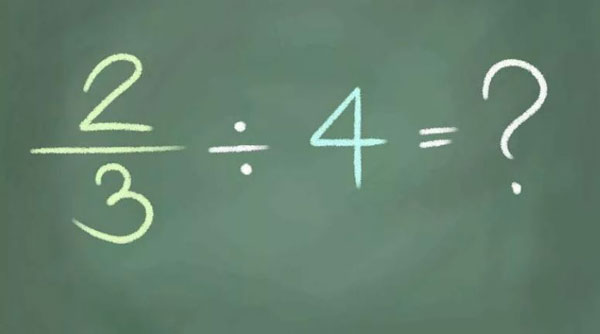 2/3 ÷ 4 = ?